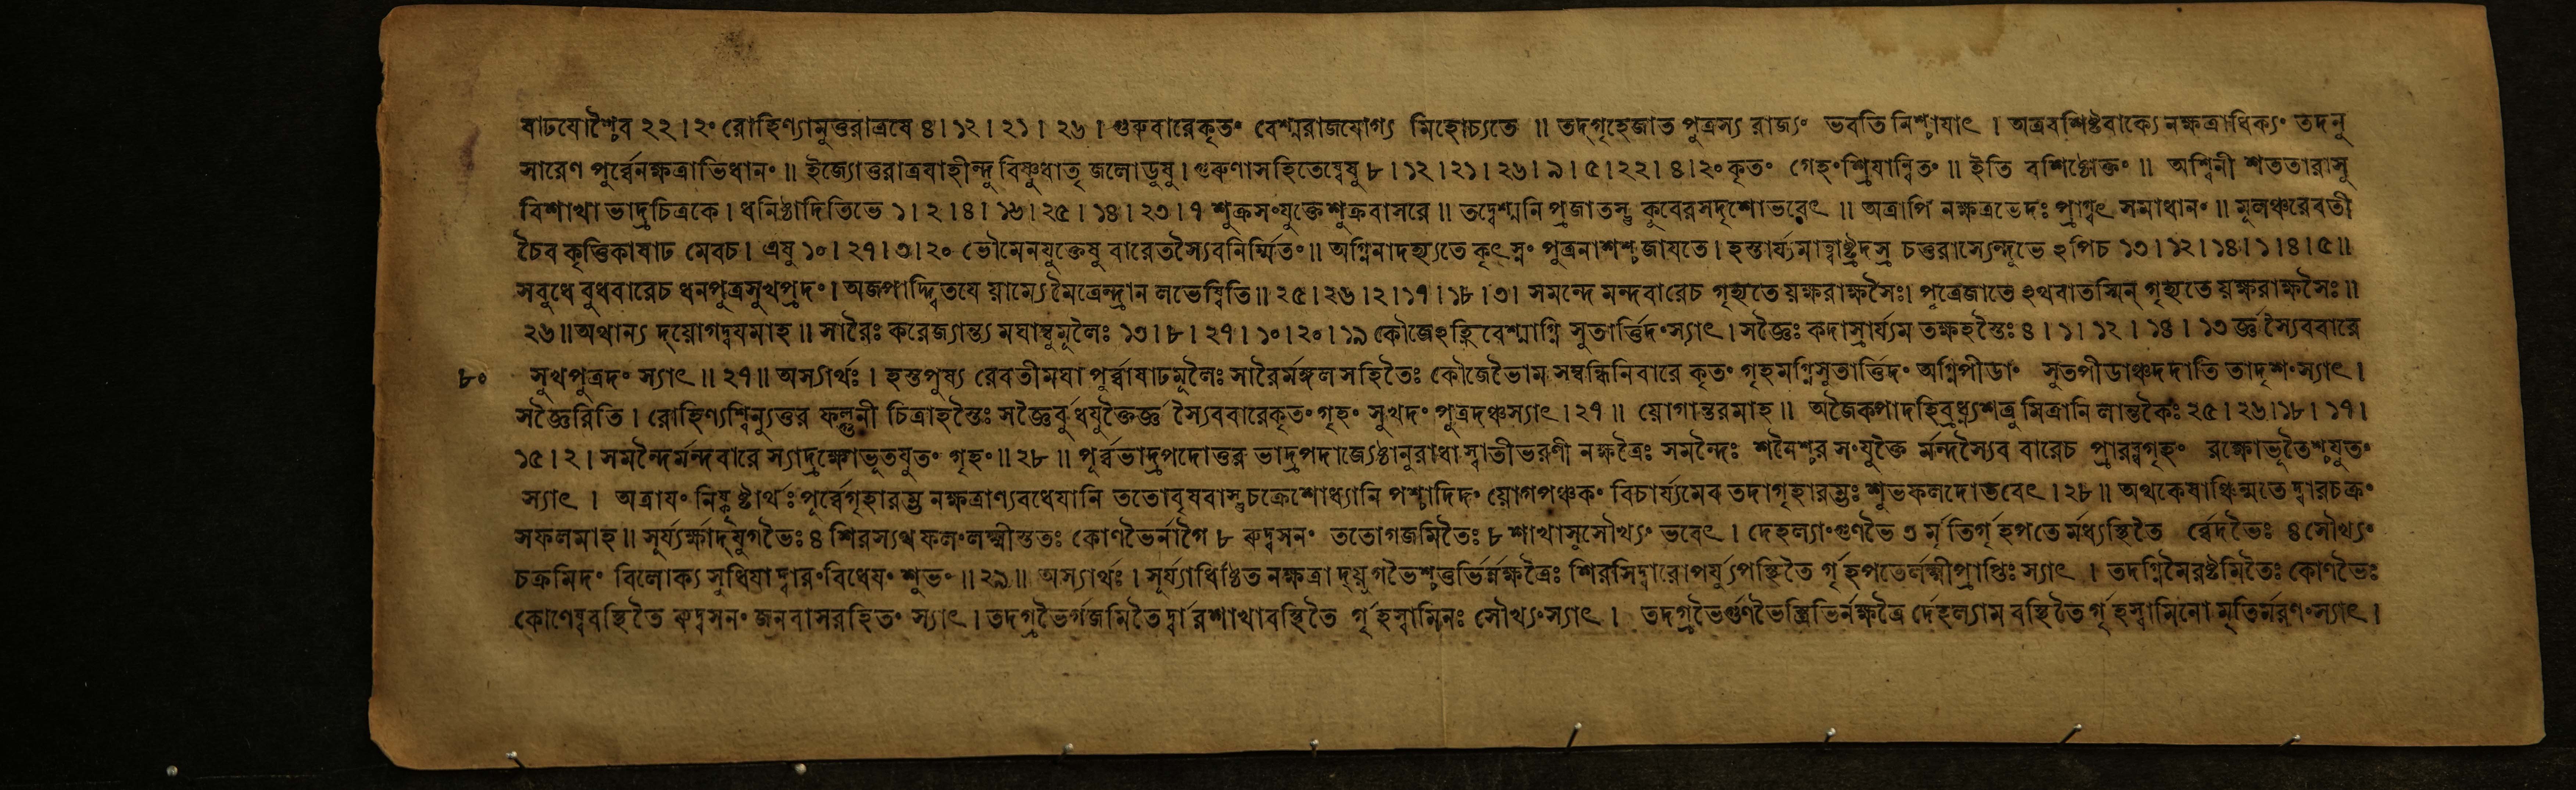 ষাঢযোশ্চৈব ২২।২০ রোহিণ্যামুত্তরাত্রষে ৪।১২।২১।২৬। গুরুবারেকৃতং বেশ্মরাজযোগ্য মিহোচ্যতে॥ তদ্গৃহেজাত পুত্রস্য রাজ্যং ভবতি নিশ্চযাৎ। অত্রবশিষ্টবাক্যে নক্ষত্রাধিক্যং তদনু
সারেণ পুর্ব্বেনক্ষত্রাভিধানং॥ ইজ্যোত্তরাত্রযাহীন্দু বিষ্ণুধাতৃ জলোডুষু। গুরুণাসহিতেষ্বেষু ৮।১২।২১।২৬।৯।৫।২২।৪।২০ কৃতং গেহংশ্রিযান্বিতং॥ ইতি বশিষ্ঠোক্তং॥ অশ্বিনী শততারাসু
বিশাখা ভাদ্রচিত্রকে। ধনিষ্ঠাদিতিভে ১।২।৪।১৬।২৫।১৪।২৩।৭ শুক্রসংযুক্তেশুক্রবাসরে॥ তদ্বেশ্মনি প্রজাতস্তু কুবেরসদৃশোভবেৎ॥ অত্রাপি নক্ষত্রভেদঃ প্রাগ্বৎ সমাধানং॥ মূলঞ্চরেবতী
চৈব কৃত্তিকাষাঢ মেবচ। এষু ১০।২৭।৩।২০ ভৌমেনযুক্তেষু বারেতস্যৈবনির্ম্মিতং॥ অগ্নিনাদহ্যতে কৃৎস্নং পুত্রনাশশ্চজাযতে। হস্তার্য্যমাত্বাষ্ট্রদস্র চত্তরাস্যেন্দুভে ঽপিচ ১৩।১২।১৪।১।৪।৫॥
সবুধে বুধবারেচ ধনপুত্রসুখপ্রদং। অজপাদ্দ্বিতযে য়াম্যে মৈত্রেন্দ্রান লভেন্বিতি॥ ২৫।২৬।২।১৭।১৮।৩। সমন্দে মন্দবারেচ গৃহ্যতে য়ক্ষরাক্ষসৈঃ। পুত্রেজাতে ঽথবাতস্মিন্ গৃহ্যতে য়ক্ষরাক্ষসৈঃ॥
২৬॥ অথান্য দ্য়োগদ্বযমাহ॥ সারৈঃ করেজ্যান্ত্য মঘাম্বুমূলৈঃ ১৩।৮।২৭।১০।২০।১৯ কৌজেঽহ্নিবেশ্মাগ্নি সুতার্ত্তিদংস্যাৎ। সজ্ঞৈঃ কদাস্রার্য্যম তক্ষহস্তৈঃ ৪।১।১২।১৪।১৩ র্জ্ঞস্যৈববারে
৮০ সুখপুত্রদং স্যাৎ॥ ২৭॥ অস্যার্থঃ। হস্তপুষ্য রেবতীমঘা পূর্ব্বাষাঢমূলৈঃ সারৈর্মঙ্গল সহিতৈঃ কৌজেভৌম সম্বন্ধিনিবারে কৃতং গৃহমগ্নিসুতার্ত্তিদং অগ্নিপীডাং সুতপীডাঞ্চদদাতি তাদৃশংস্যাৎ।
সজ্ঞৈরিতি। রোহিণ্যশ্বিন্যুত্তর ফল্গুনী চিত্রাহস্তৈঃ সজ্ঞৈর্বুধযুক্তৈর্জ্ঞস্যৈববারেকৃতং গৃহং সুখদং পুত্রদঞ্চস্যাৎ। ২৭॥ য়োগান্তরমাহ॥ অজৈকপাদহির্বুধ্ন্যশত্রু মিত্রানি লান্তকৈঃ ২৫।২৬।১৮।১৭।
১৫।২। সমন্দৈর্মন্দবারে স্যাদ্রক্ষোভূতযুতং গৃহং॥ ২৮॥ পূর্ব্বভাদ্রপদোত্তর ভাদ্রপদাজ্যেষ্ঠানুরাধা স্বাতীভরণী নক্ষত্রৈঃ সমন্দৈঃ শনৈশ্চর সংযুক্তৈ র্মন্দস্যৈব বারেচ প্রারব্ধগৃহং রক্ষোভূতৈশ্চযুতং
স্যাৎ। অত্রাযং নিষ্কৃষ্টার্থঃ পূর্ব্বেগৃহারম্ভ নক্ষত্রাণ্যবধেযানি ততোবৃষবাস্তুচক্রেশোধ্যানি পশ্চাদিদং য়োগপঞ্চকং বিচার্য্যমেব তদাগৃহারম্ভঃ শুভফলদোভবেৎ। ২৮॥ অথকেষাঞ্চিন্মতে দ্বারচক্রং
সফলমাহ॥ সূর্য্যর্ক্ষাদ্যুগভৈঃ ৪ শিরস্যথ ফলংলক্ষ্মীস্ততঃ কোণভৈর্নাগৈ ৮ রুদ্বসনং ততোগজমিতৈঃ ৮ শাখাসুসৌখ্যং ভবেৎ। দেহল্যাংগুণভৈ ৩ র্মৃতির্গৃহপতে র্মধ্যস্থিতৈ র্ব্বেদভৈঃ ৪ সৌখ্যং
চক্রমিদং বিলোক্য সুধিযা দ্বারংবিধেযং শুভং॥ ২৯॥ অস্যার্থঃ। সূর্য্যাধিষ্ঠিত নক্ষত্রা দ্যুগভৈশ্চতুর্ভির্ন্নক্ষত্রৈঃ শিরসিদ্বারোপর্য্যুপস্থিতৈ র্গৃহপতের্লক্ষ্মীপ্রাপ্তিঃ স্যাৎ। তদগ্রিমৈরষ্টমিতৈঃ কোণভৈঃ
কোণেষ্ববস্থিতৈ রুদ্বসনং জনবাসরহিতং স্যাৎ। তদগ্রভৈর্গজমিতৈ র্দ্বারশাখাবস্থিতৈ র্গৃহস্বামিনঃ সৌখ্যংস্যাৎ। তদগ্রভৈর্গুণভৈস্ত্রিভির্নক্ষত্রৈ র্দেহল্যাম বস্থিতৈ র্গৃহস্বামিনো মৃতির্মরণংস্যাৎ।